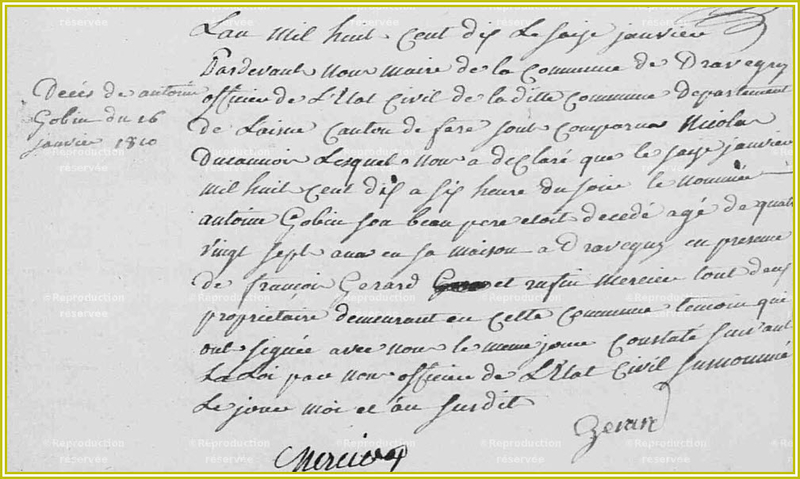 L'an mil huit cent dix le saize janvier
Pardevant nous maire de la Commune de Dravegny
officier de L'Etat Civil de la ditte Commune departement
de Laisne Canton de fere sont comparu Nicolas
Lesquel nous a declaré que le saze janvier
mil huit cent dix a six heure du soire le nommée
antoine Gobin son beau pere etoit decedé agé de quatre
vingt sept ans en sa maison a Dravegny en presence
de françois Gerard et rufin Mercier tout deux
propriétaire demeurant en cette commune temoin qui
ont signée avec nous le meme jour Constaté suivant
La Loi par nous officier de L'Etat Civil surnommé
Le jour moi et an susdit
Decés de antoine
Gobin du 16
janvier 1810
Gerard
Mercier
©Reproduction
réservée